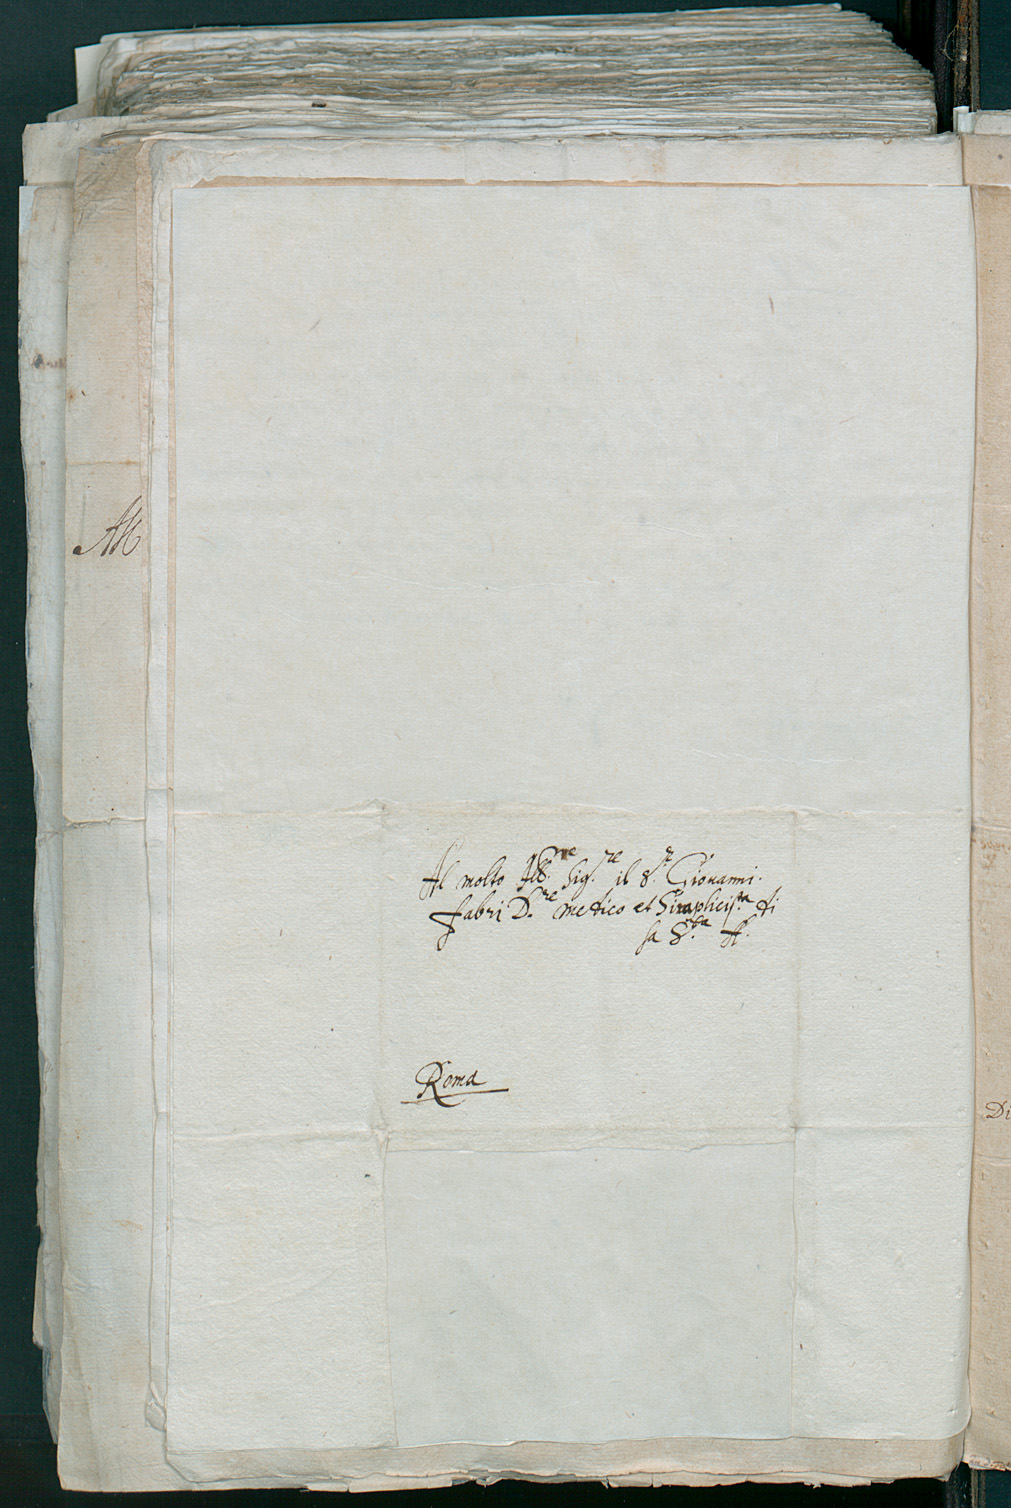 Al molto Ill.re sig.re il S.r Giovanni.
fabri D.re medico et Simplicis.ta di
sa S.ta
Roma
Al
Di